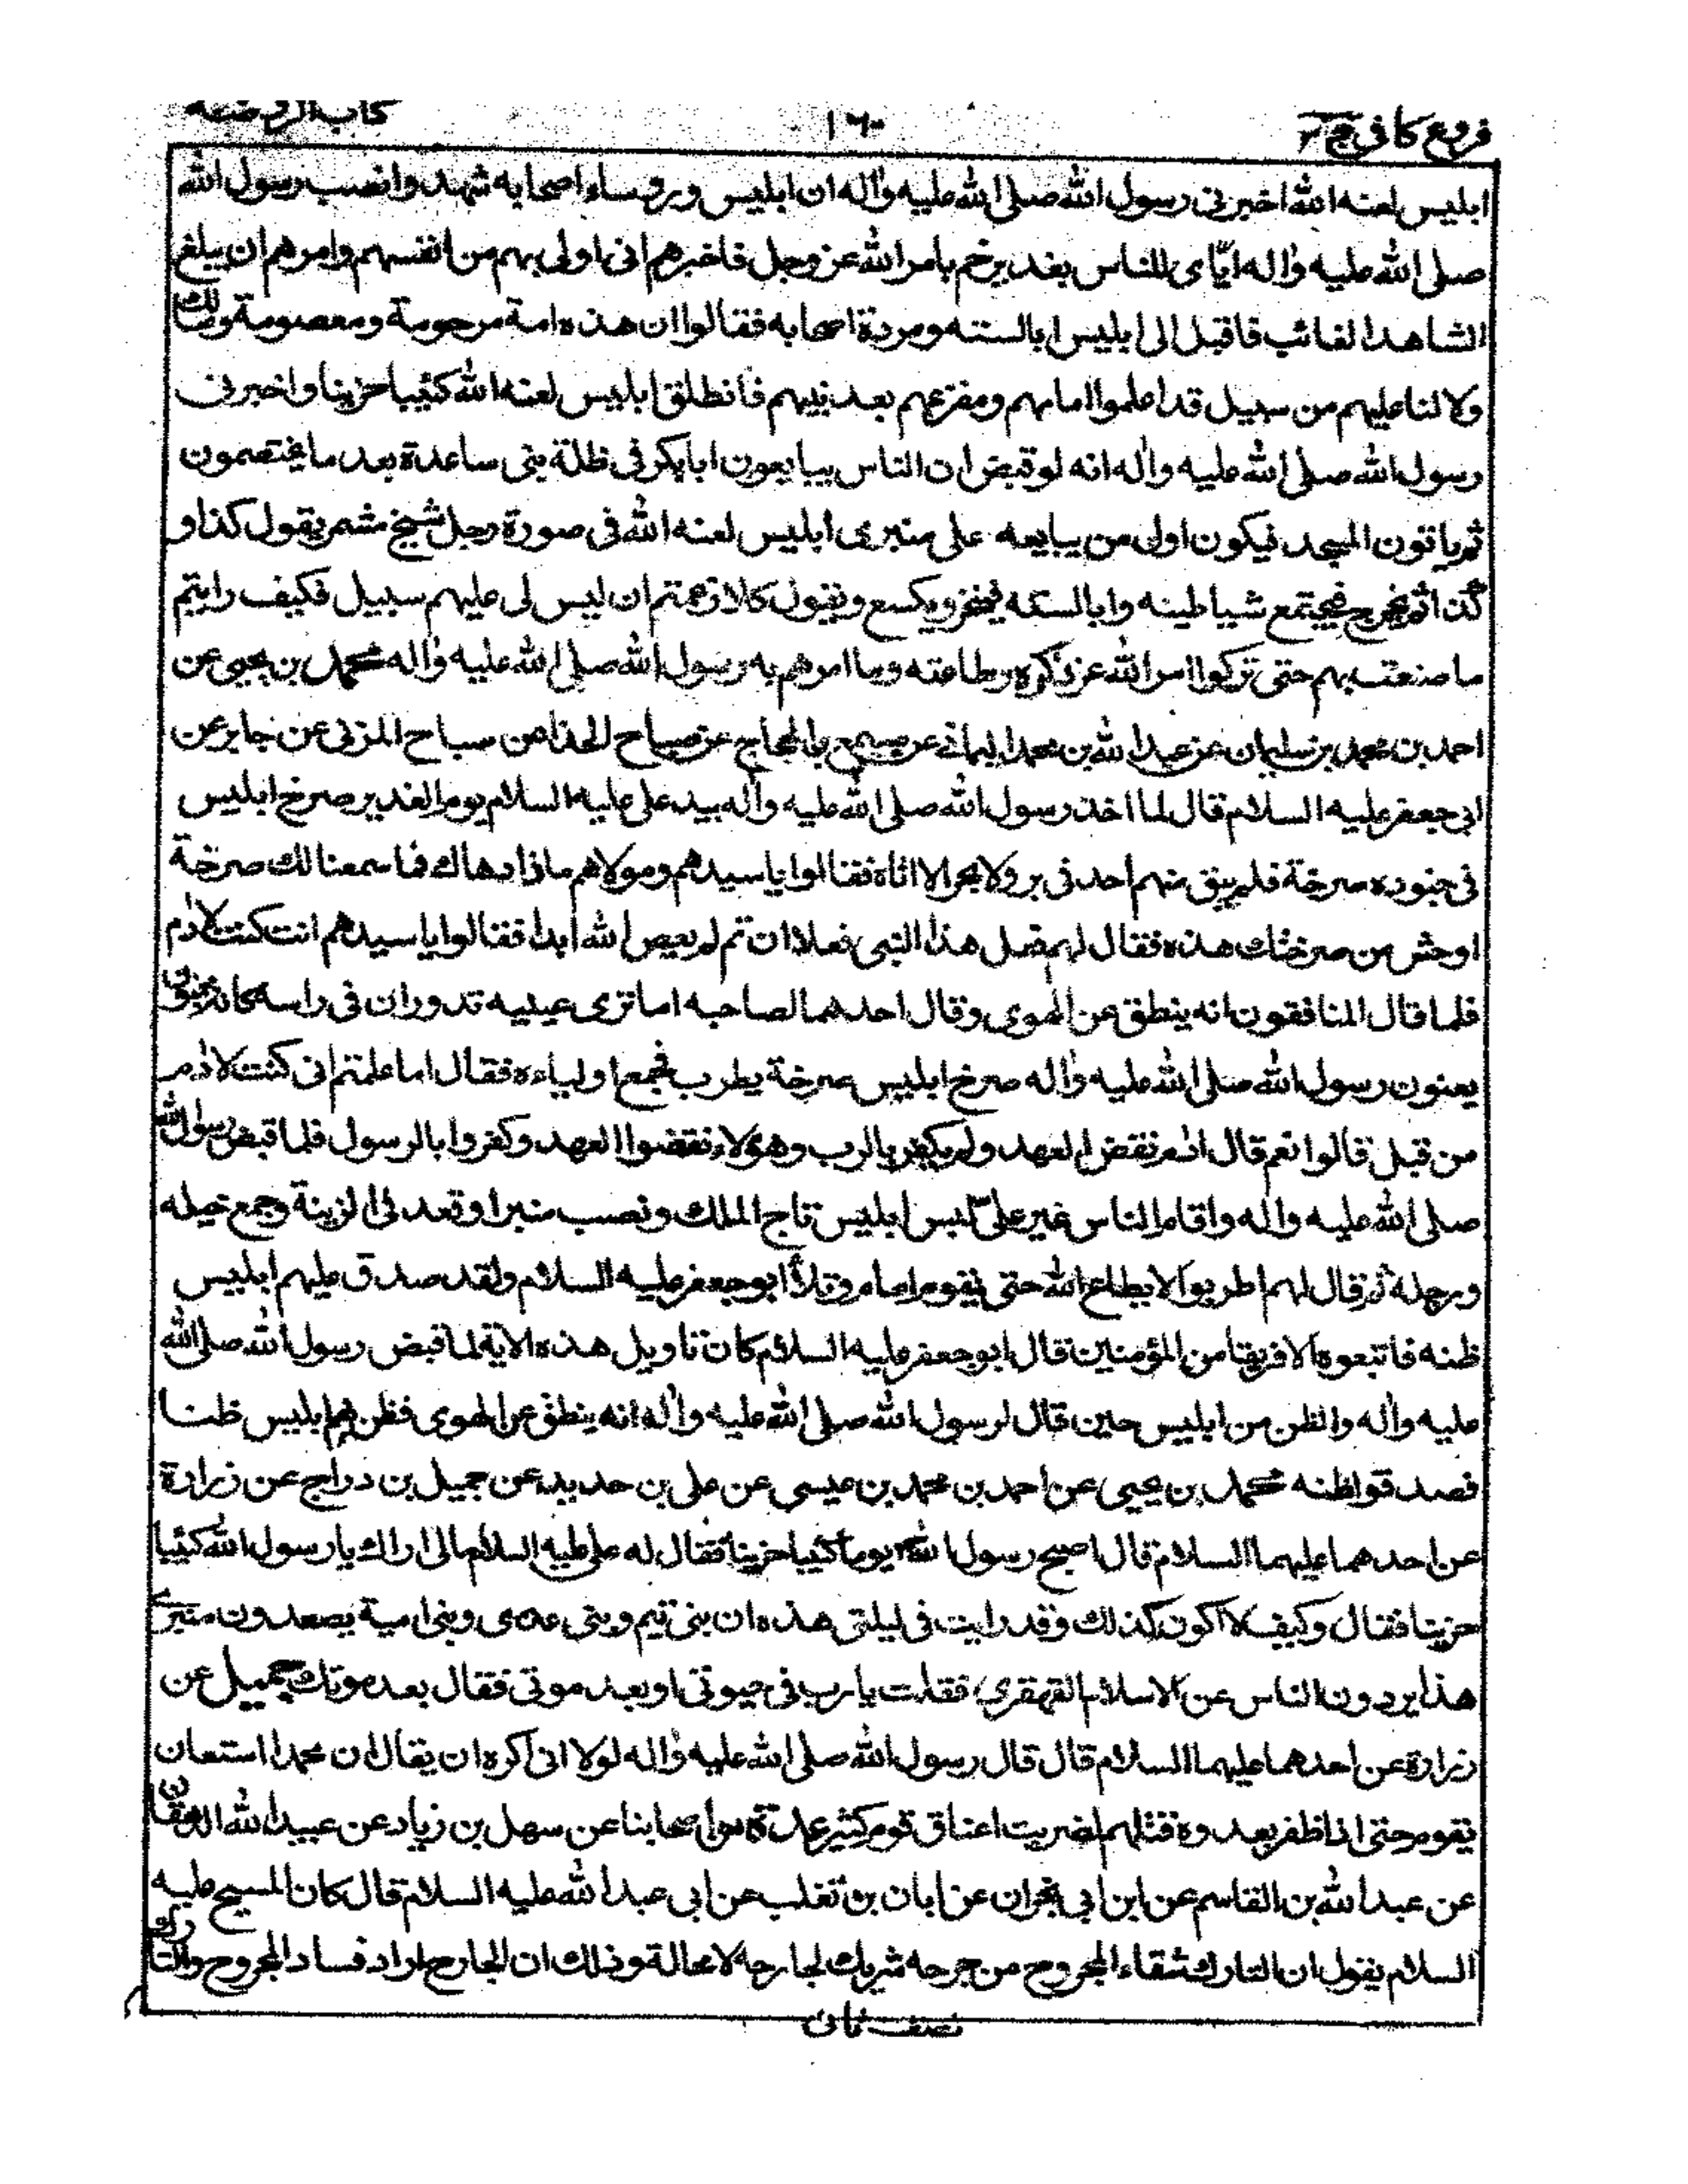 فروع كافى ج ٣ ١٦٠ كتاب الروضة
ابليس لعنه الله اخبرنى رسول الله صلى الله عليه واله ان ابليس ورؤساء اصحابه شهدوا نصب رسول الله
صلى الله عليه واله ايّاى للناس بغدير خم بامر الله عز وجل فاخبرهم انى اولى بهم من انفسهم وامرهم ان يبلغ
الشاهد الغائب فاقبل الى ابليس ابالسته ومردة اصحابه فقالوا ان هذه امة مرحومة ومعصومة ومالك
ولا لنا عليهم من سبيل قد اعلموا امامهم ومفزعهم بعد نبيهم فانطلق ابليس لعنه الله كئيبا حزينا واخبرنى
رسول الله صلى الله عليه واله انه لو قبض ان الناس يبايعون ابابكر فى ظلة بنى ساعدة بعد ما يختصمون
ثم ياتون المسجد فيكون اول من يبايعه على منبرى ابليس لعنه الله فى صورة رجل شيخ مشمر يقول كذا و
كذا ثم يخرج فيجتمع شياطينه وابالسته فينخر ويكسع ويقول كلا زعمتم ان ليس لى عليهم سبيل فكيف رايتم
ما صنعت بهم حتى تركوا امر الله عز ذكره وطاعته وما امرهم به رسول الله صلى الله عليه واله محمد بن يحيى عن
احمد بن محمد بن سليمان عن عبد الله بن محمد اليمانى عن مسمع بن الحجاج عن صباح الحذاء عن صباح المزنى عن جابر عن
ابى جعفر عليه السلام قال لما اخذ رسول الله صلى الله عليه واله بيد على عليه السلام يوم الغدير صرخ ابليس
فى جنوده صرخة فلم يبق منهم احد فى بر ولا بحر الا اتاه فقالوا يا سيدهم ومولاهم ماذا دهاك فما سمعنا لك صرخة
اوحش من صرختك هذه فقال لهم فعل هذا النبى فعلا ان تم لم يعص الله ابدا فقالوا يا سيدهم انت كنت لادم
فلما قال المنافقون انه ينطق عن الهوى وقال احدهما لصاحبه اما ترى عينيه تدوران فى راسه كانه مجنون
يعنون رسول الله صلى الله عليه واله صرخ ابليس صرخة يطرب فجمع اولياءه فقال اما علمتم انى كنت لادم
من قبل قالوا نعم قال ادم نقض العهد ولم يكفر بالرب وهؤلاء نقضوا العهد وكفروا بالرسول فلما قبض رسول الله
صلى الله عليه واله واقام الناس غير علىّ لبس ابليس تاج الملك ونصب منبرا وقعد فى الزينة وجمع خيله
ورجله ثم قال لهم اطربوا لا يطاع الله حتى يقوم امام وتلا ابو جعفر عليه السلام ولقد صدق عليهم ابليس
ظنه فاتبعوه الا فريقا من المؤمنين قال ابو جعفر عليه السلام كان تاويل هذه الاية لما قبض رسول الله صلى الله
عليه واله والظن من ابليس حين قال لرسول الله صلى الله عليه واله انه ينطق عن الهوى فظن بهم ابليس ظنا
فصدقوا ظنه محمد بن يحيى عن احمد بن محمد بن عيسى عن على بن حديد عن جميل بن دراج عن زرارة
عن احدهما عليهما السلام قال اصبح رسول الله يوما كئيبا حزينا فقال له على عليه السلام مالى اراك يا رسول الله كئيبا
حزينا فقال وكيف لا اكون كذلك وقد رايت فى ليلتى هذه ان بنى تيم وبنى عدى وبنى امية يصعدون منبرى
هذا يردون الناس عن الاسلام القهقرى فقلت يا رب فى حيوتى او بعد موتى فقال بعد موتك جميل عن
زرارة عن احدهما عليهما السلام قال قال رسول الله صلى الله عليه واله لولا انى اكره ان يقال ان محمدا استعان
بقوم حتى اذا ظفر بعدوه قتلهم لضربت اعناق قوم كثير عدة من اصحابنا عن سهل بن زياد عن عبيد الله الدهقان
عن عبد الله بن القاسم عن ابن ابى نجران عن ابان بن تغلب عن ابى عبد الله عليه السلام قال كان المسيح عليه
السلام يقول ان التارك شفاء المجروح من جرحه شريك لجارحه لا محالة وذلك ان الجارح اراد فساد المجروح والتارك
نصف ثانى